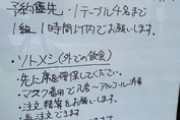 予約優先・1テーブル4名まで
1組 1時間以内でお願いします。
ソトメシ(外での飲食)
・先に席を確保してください。
・マスク着用で入店→アルコール消毒
・注文精算をお願いします。